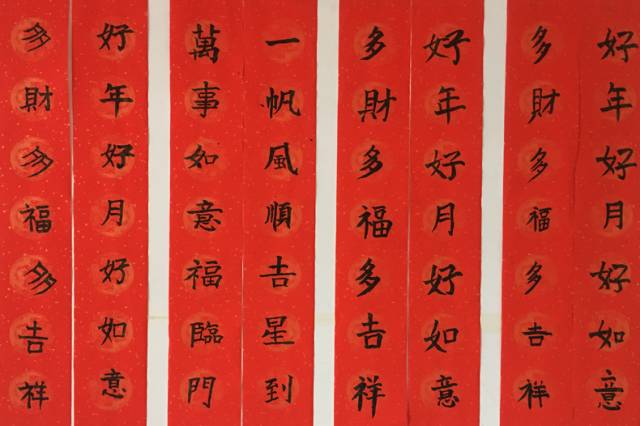 好年好月好如意
多財多福多吉祥
好年好月好如意
多財多福多吉祥
一帆風順吉星到
萬事如意福臨門
好年好月好如意
多財多福多吉祥